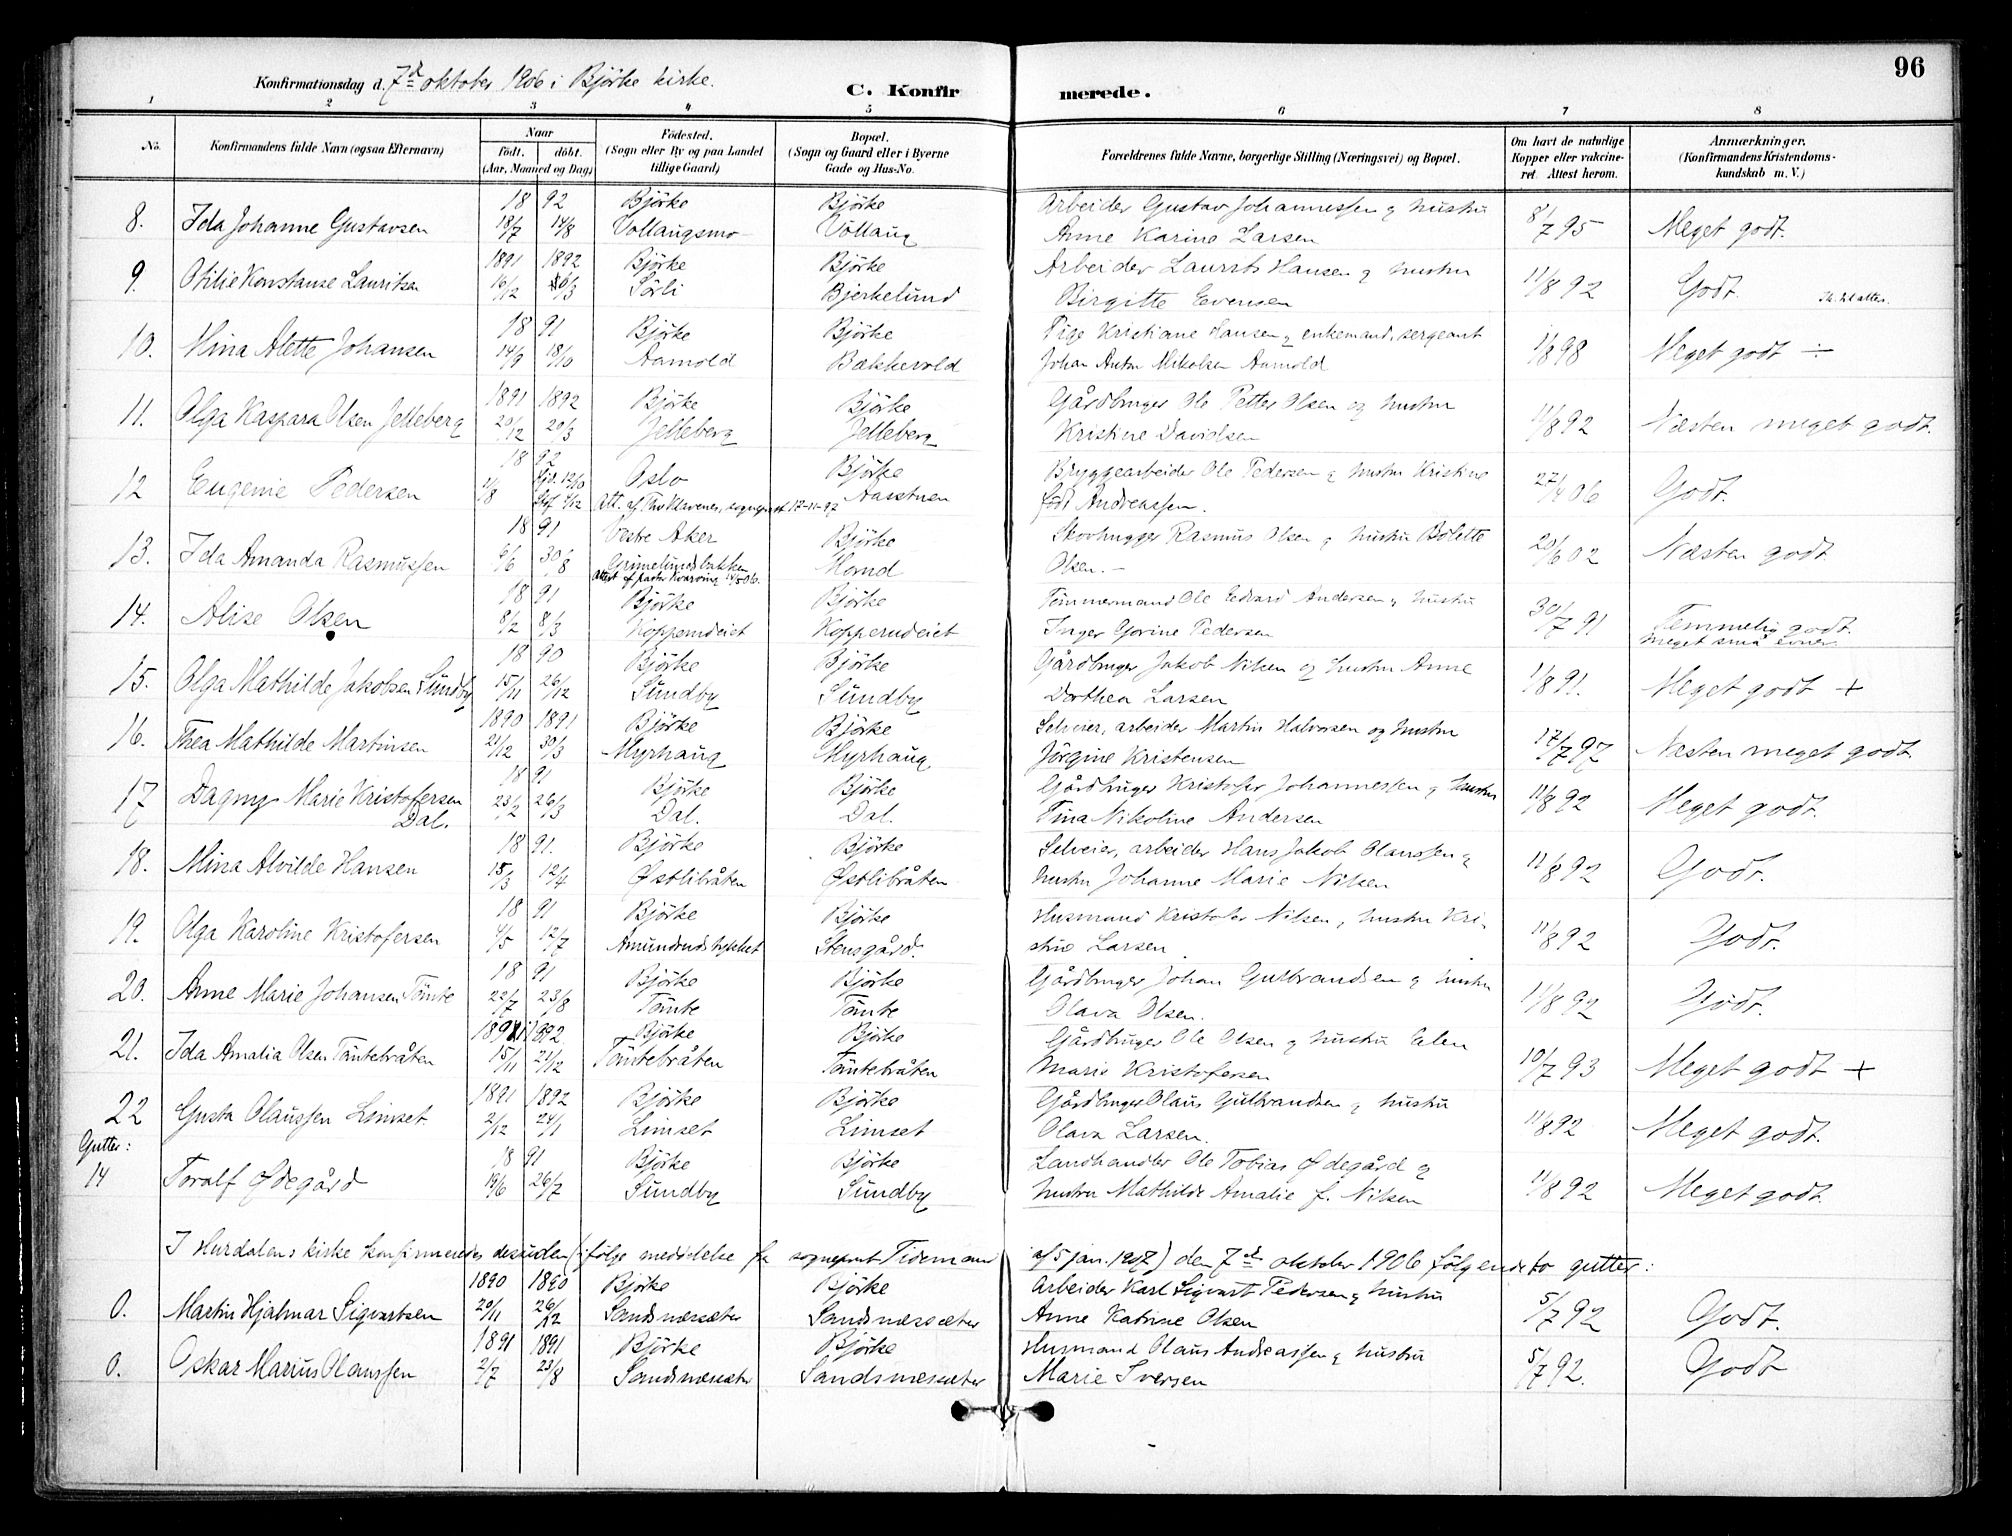 96
Konfirmationsdag d. 7de oktober 1906 i Bjørke kirke.
C. Konfirmerede.
1 2 3 4 5 6 7 8
No. Konfirmandens fulde Navn (ogsaa Efternavn) Naar født. døbt. (Aar, Maaned og Dag) Fødested. (Sogn eller By og paa Landet tillige Gaard) Bopæl. (Sogn og Gaard eller i Byerne Gade og Hus-No. Forældrenes fulde Navne, borgerlige Stilling (Næringsvei) og Bopæl. Om havt de naturlige Kopper eller vakcineret. Attest herom. Anmærkninger. (Konfirmandens Kristendomskundskab m. V.)
18 92 Bjørke Bjørke Arbeider Gustav Johannessen & hustru
8. Ida Johanne Gustavsen 18/7 14/8 Vollaugsmo Vollaug Anne Karine Larsen 8/7 95 Meget godt.
1891 1892 Bjørke Bjørke Arbeider Laurits Hansen & hustru
9. Otilie Konstanse Lauritsen 16/12 6/3 Sørli Bjerkelund Birgitte Evensen 11/8 92 Godt.
18 91 Bjørke Bjørke Pige Kristiane Hansen & enkemand, sergeant
10. Mina Alette Johansen 14/9 18/10 Aamold Bakkevold Johan Anton Nikolsen Aamold 11/8 98 Meget godt ÷
1891 1892 Bjørke Bjørke Gårdbruger Ole Petter Olsen og hustru
11. Olga Kaspara Olsen Jelleberg 20/12 20/3 Jelleberg Jelleberg Kristine Davidsen 11/8 92 Næsten meget godt.
18 92 Oslo Bjørke Bryggearbeider Ole Pedersen & hustru Kristine
12 Eugenie Pedersen 11/8 Hjd. 12/10 Stf. 4/12 Att. af Thv Klavenes, sognepst 17-11-92 Aasstuen født Andreassen. 27/4 06 Godt.
18 91 Vestre Aker Bjørke Skovhugger Rasmus Olsen & hustru Bolette
13. Ida Amanda Rasmussen 6/6 30/8 Grimelundsbakken Hornd Olsen. – 20/6 02 Næsten godt.
Attest af pastor Kvarving 14/5 06.
18 91 Bjørke Bjørke Tømmermand Ole Edvard Andersen & hustru
14. Alise Olsen 8/2 8/3 Kopperudeiet Kopperudeiet Inger Gorine Pedersen 30/7 91 Temmelig godt.
meget små evner.
18 90 Bjørke Bjørke Gårdbruger Jakob Nilsen og hustru Anne
15. Olga Mathilde Jakobsen Sundby 15/11 26/12 Sundby Sundby Dorthea Larsen 11/8 91. Meget godt +
1890 1891 Bjørke Bjørke Selveier, arbeider Martin Halvorsen og hustru
16. Thea Mathilde Martinsen 21/12 30/3 Myrhaug Myrhaug Jørgine Kristensen 17/7 97 Næsten meget godt.
18 91 Bjørke Bjørke Gårdbruger Kristofer Johannessen & hustru
17 Dagny Marie Kristofersen Dal. 23/2 26/3 Dal. Dal. Tina Nikoline Andersen 11/8 92 Meget godt.
18 91. Bjørke Bjørke Selveier, arbeider Hans Jakob Olaussen &
18. Mina Alvilde Hansen 15/3 12/4 Østlibråten Østlibråten hustru Johanne Marie Nilsen 11/8 92 Godt.
18 91 Bjørke Bjørke Husmand Kristofer Nilsen, hustru Kri-
19. Olga Karoline Kristofersen 9/5 12/7 Amundrudstykket Stensgård. stine Larsen 11/8 92 Godt.
18 91 Bjørke Bjørke Gårdbruger Johan Gulbrandsen & hustru
20. Anne Marie Johansen Tømte 22/7 23/8 Tømte Tømte Olava Olsen. 11/8 92 Godt.
1891 1892 Bjørke Bjørke Gårdbruger Ole Olsen & hustru Elen
21. Ida Amalia Olsen Tømtebråten 15/11 21/12 Tømtebråten Tømtebråten Marie Kristofersen 10/7 93 Meget godt +
1891 1892 Bjørke Bjørke Gårdbruger Olaus Gulbrandsen & hustru
22 Gusta Olaussen Limset 2/12 24/1 Limset Limset Olava Larsen. 11/8 92 Meget godt.
Gutter:
18 91 Bjørke Bjørke Landhandler Ole Tobias Ødegård &
14 Toralf Ødegård 19/6 26/7 Sundby Sundby hustru Mathilde Amalie f. Nilsen 11/8 92 Meget godt.
I Hurdalens kirke konfirmeredes desuden (ifølge meddelelse fra sogneprest Tidemann af 5 jan. 1907) den 7de oktober 1906 følgende to gutter:
1890 1890 Bjørke Bjørke Arbeider Karl Sigvart Pedersen & hustru
0. Martin Hjalmar Sigvartsen 20/11 26/12 Sandsnessæter Sandsnessæter Anne Katrine Olsen 5/7 92 Godt.
1891 1891 Bjørke Bjørke Husmand Olaus Andreassen & hustru
0. Oskar Marius Olaussen 2/7 23/8 Sandsnessæter Sandsnessæter Marie Iversen 5/7 92. Godt